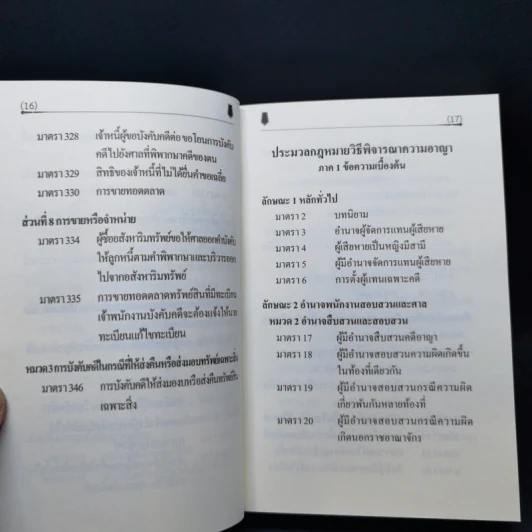 (16)
มาตรา 328 เจ้าหนี้ผู้ขอบังคับคดีต่อ ขอโอนการบังคับ
คดีไปยังศาลที่พิพากษาคดีของตน
มาตรา 329 สิทธิของเจ้าหนี้ที่ไม่ได้ยื่นคำขอเฉลี่ย
มาตรา 330 การขายทอดตลาด
ส่วนที่ 8 การขายหรือจำหน่าย
มาตรา 334 ผู้ซื้ออสังหาริมทรัพย์ขอให้ศาลออกคำบังคับ
ให้ลูกหนี้ตามคำพิพากษาและบริวารออก
ไปจากอสังหาริมทรัพย์
มาตรา 335 การขายทอดตลาดทรัพย์สินที่มีทะเบียน
เจ้าพนักงานบังคับคดีจะต้องแจ้งให้นาย
ทะเบียนแก้ไขทะเบียน
หมวด 3 การบังคับคดีในกรณีที่ให้ส่งคืนหรือส่งมอบทรัพย์เฉพาะสิ่ง
มาตรา 346 การบังคับคดีให้ส่งมอบหรือส่งคืนทรัพย์สิน
เฉพาะสิ่ง
(17)
ประมวลกฎหมายวิธีพิจารณาความอาญา
ภาค 1 ข้อความเบื้องต้น
ลักษณะ 1 หลักทั่วไป
มาตรา 2 บทนิยาม
มาตรา 3 อำนาจผู้จัดการแทนผู้เสียหาย
มาตรา 4 ผู้เสียหายเป็นหญิงมีสามี
มาตรา 5 ผู้มีอำนาจจัดการแทนผู้เสียหาย
มาตรา 6 การตั้งผู้แทนเฉพาะคดี
ลักษณะ 2 อำนาจพนักงานสอบสวนและศาล
หมวด 2 อำนาจสืบสวนและสอบสวน
มาตรา 17 ผู้มีอำนาจสืบสวนคดีอาญา
มาตรา 18 ผู้มีอำนาจสอบสวนความผิดเกิดขึ้น
ในท้องที่เดียวกัน
มาตรา 19 ผู้มีอำนาจสอบสวนกรณีความผิด
เกี่ยวพันกันหลายท้องที่
มาตรา 20 ผู้มีอำนาจสอบสวนกรณีความผิด
เกิดนอกราชอาณาจักร